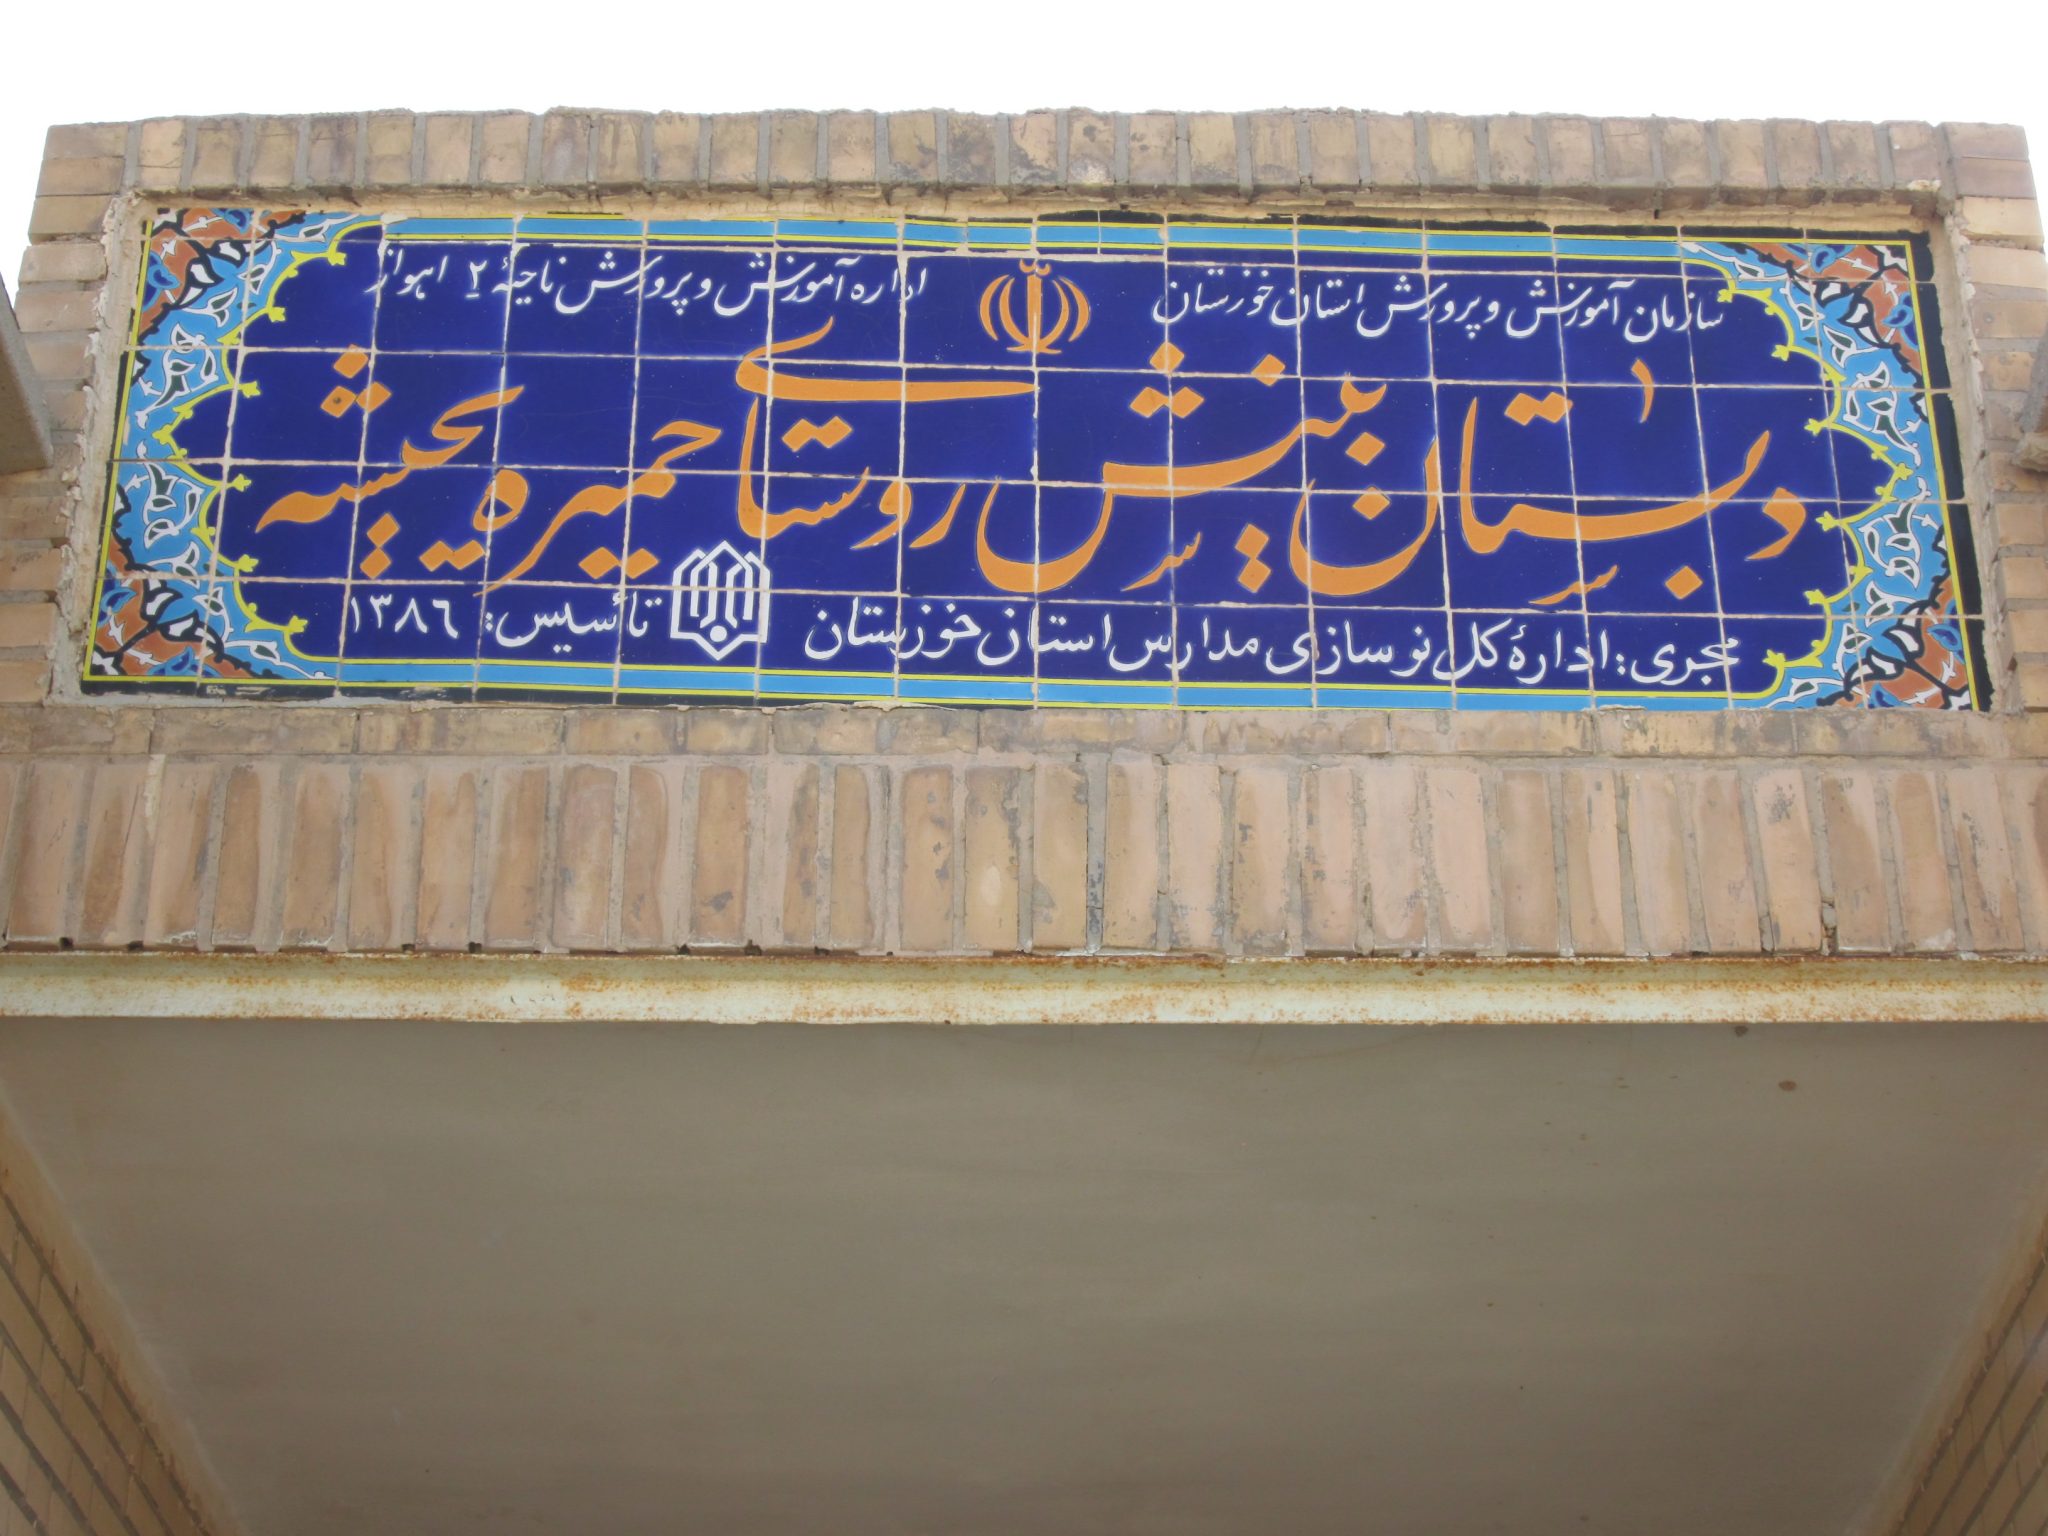 سازمان آموزش و پرورش استان خوزستان
اداره آموزش و پرورش ناحیهٔ ۲ اهواز
دبستان بینش روستای حمیره یحیشه
مجری: ادارهٔ کل نوسازی مدارس استان خوزستان
تأسیس: ۱۳۸۶